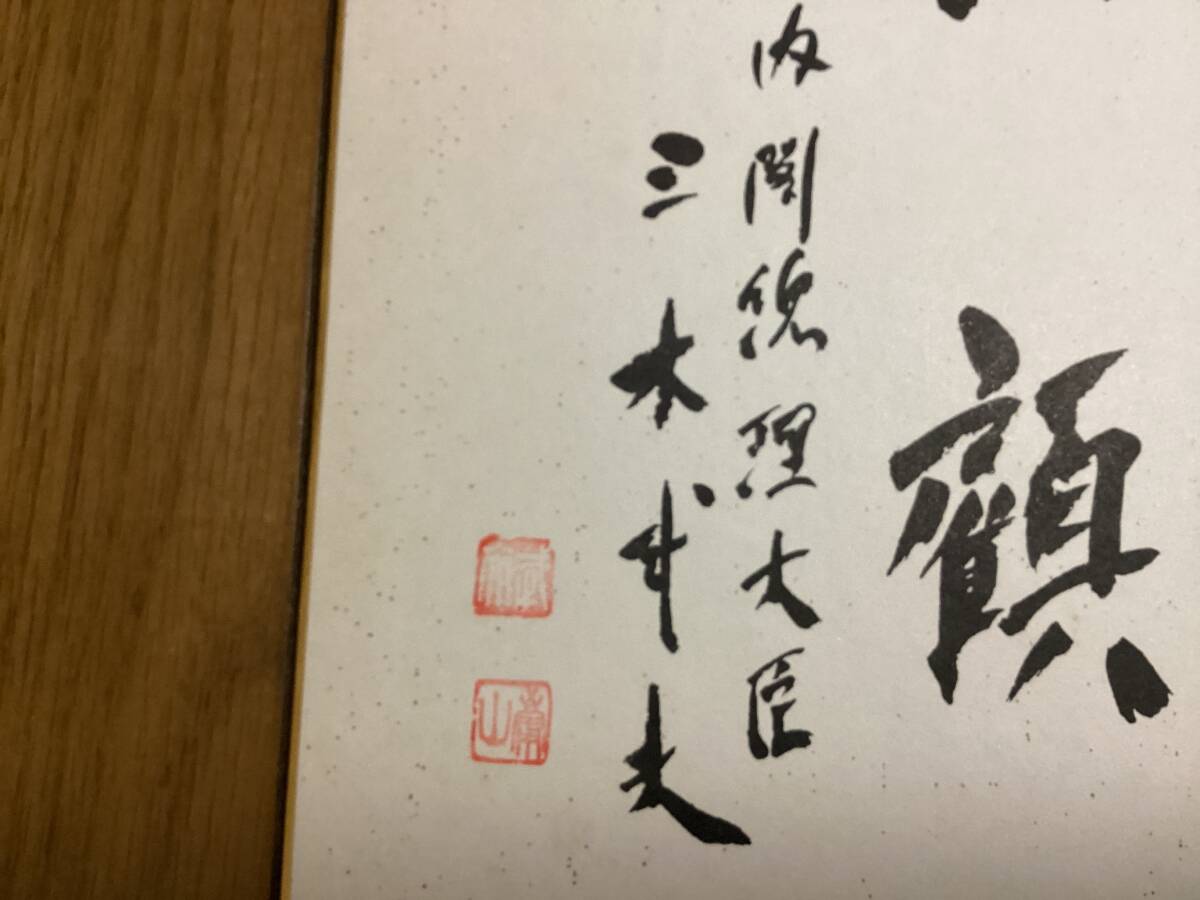 顧
内閣総理大臣
三木武夫